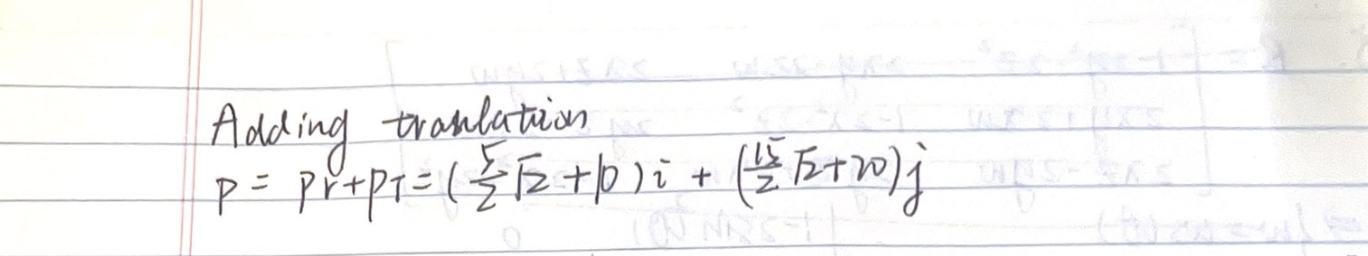 Adding tranlation
p = pr+pT = (5/2 √2 + 10) i + (15/2 √2 + 20) j